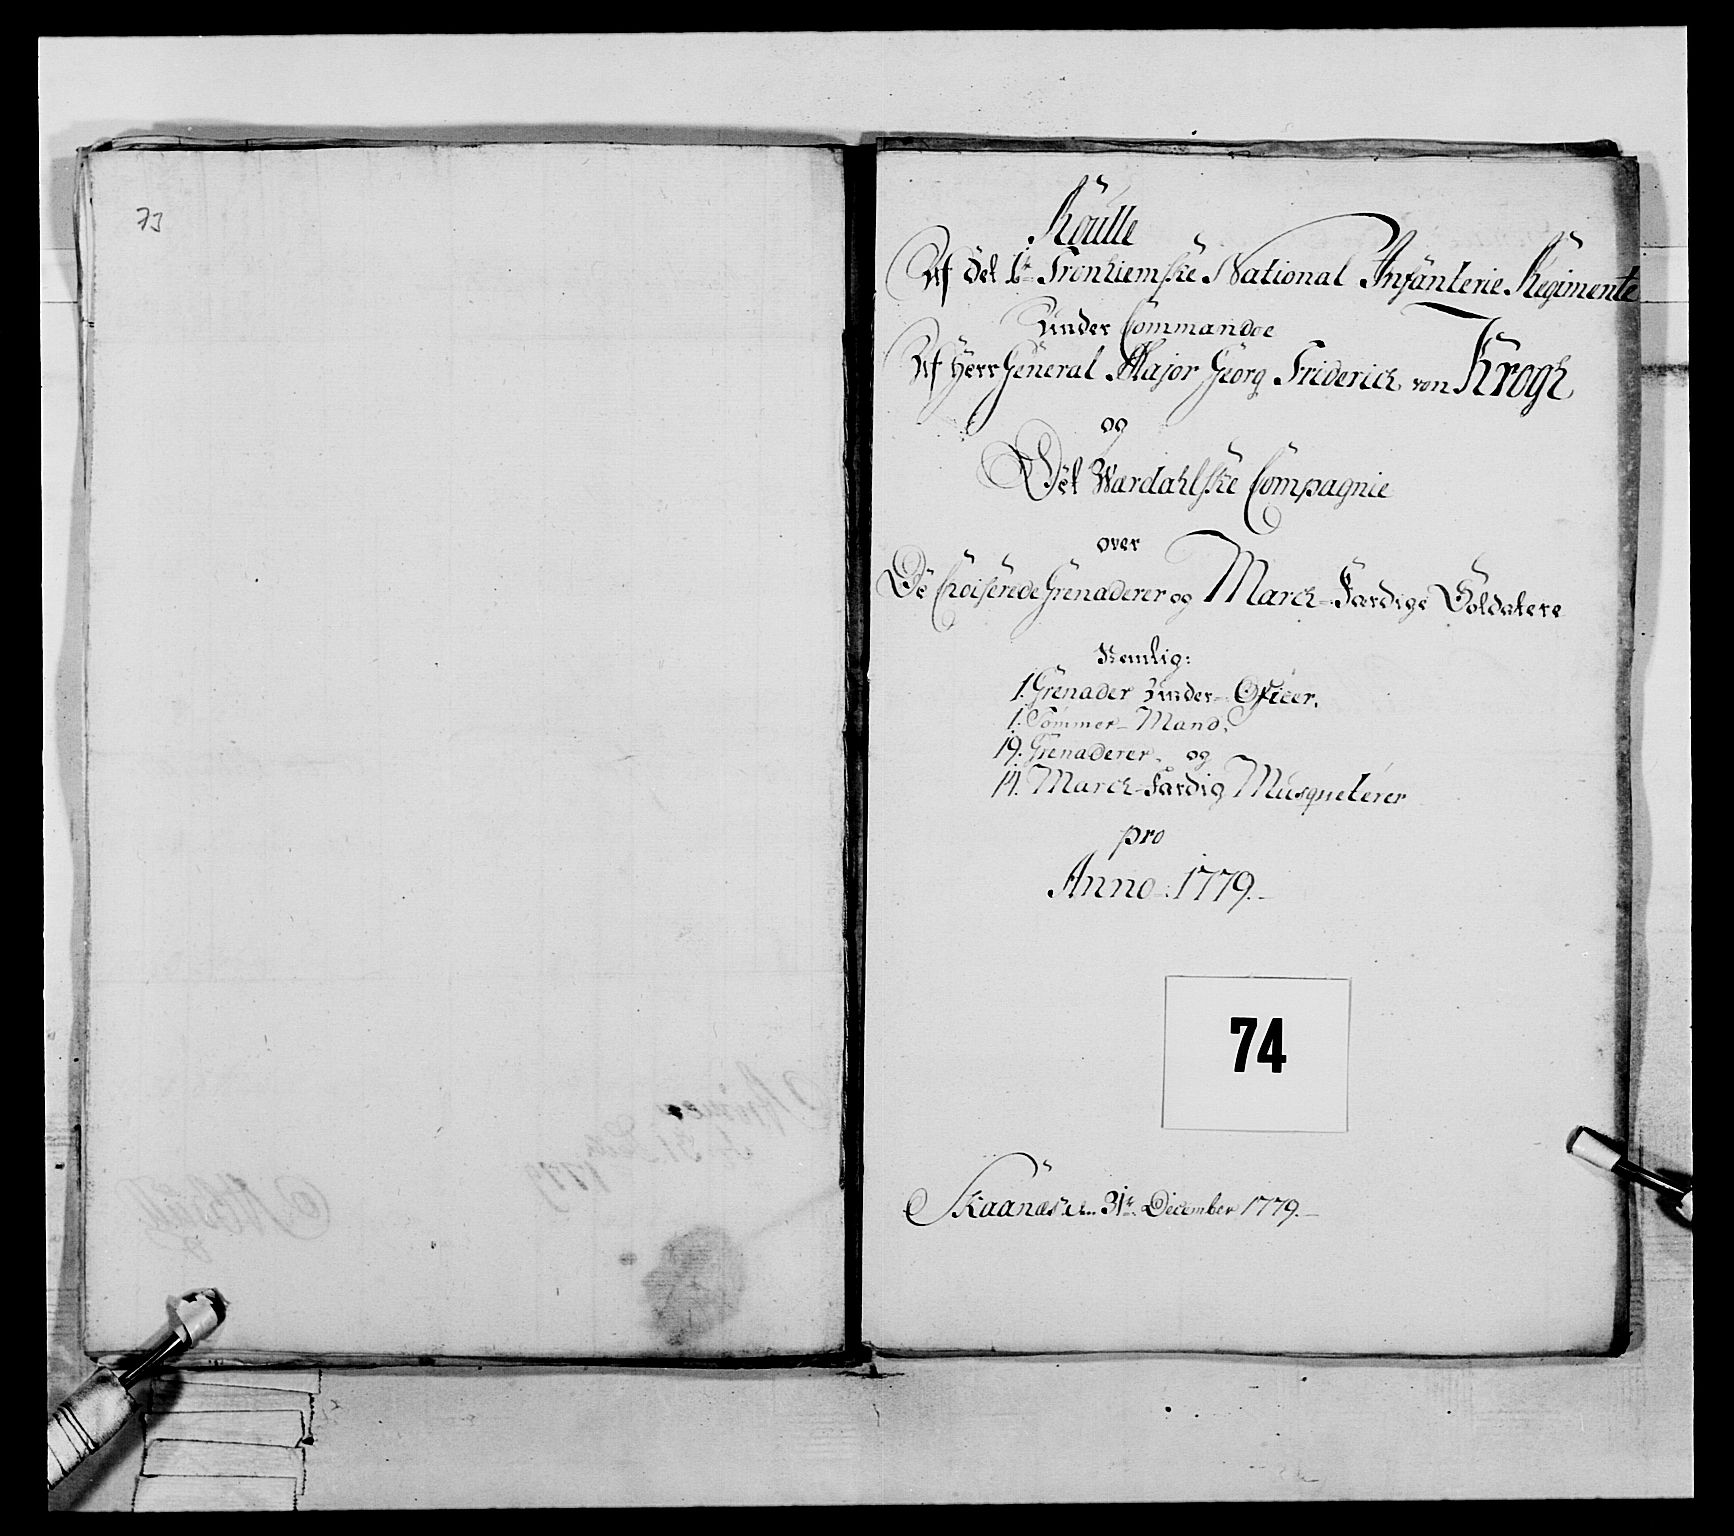 73
Roulle
Af det 1te Tronhiemske National Infanterie Regimente
under Commandoe
Af Herr General Major Georg Friderich von Krogh
og
Det Wærdahlske Compagnie
over
De Choiserede Grenaderer og March-Færdige Soldatere
Nemlig:
1. Grenader Under-Oficer.
1. Tømmer-Mand.
19. Grenaderer. og
14. March-Færdig Musqueterer
pro
Anno: 1779.-
74
Skaanæs d. 31te December 1779.-